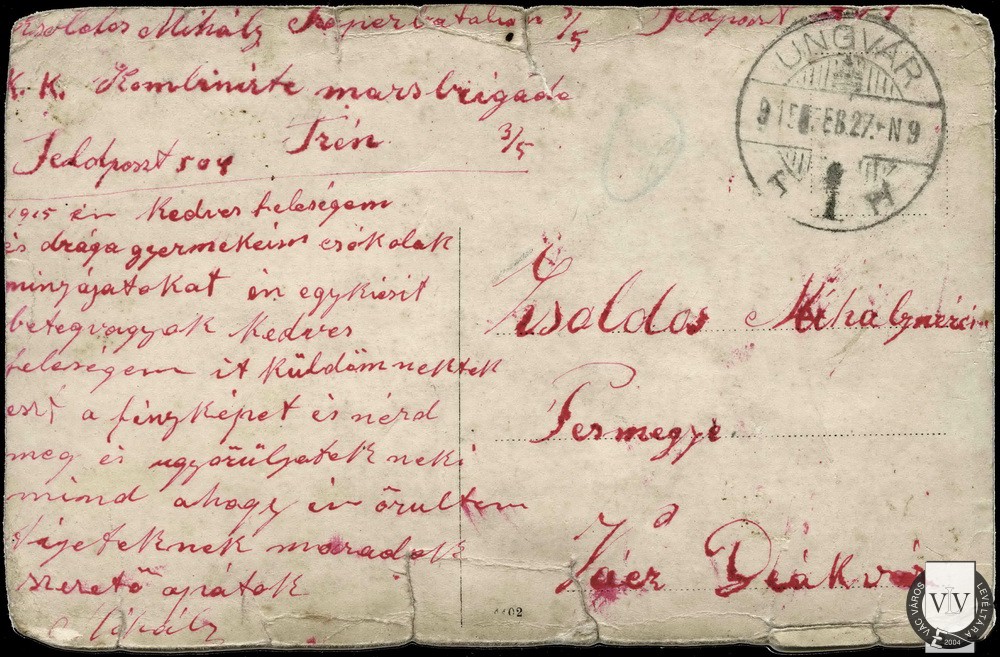 Zsoldos Mihály Szóperbatalion 3/5 Feldpost
K. K. Kombinirte marsbrigáde
Trén 3/5
Feldpost 504
1915 én Kedves feleségem
és drága gyermekeim csókolak
minyájatokat én egykicsit
betegvagyok Kedves
feleségem it küldöm nektek
eszt a fényképet és nézd
meg és ugyörüljetek neki
mind ahogy én örültem
tijeteknek maradok
szerető apátok
Mihály
UNGVÁR
915 FEB. 27. N 9
1
Zsoldos Mihálynérèm
Pestmegye
Vácz Diákvár
1102
VÁC VÁROS LEVÉLTÁRA
VLV
2004